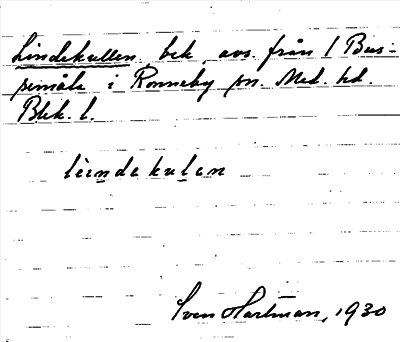 Lindekullen, bek. avs. från 1 Bus-
semåla i Ronneby sn. Med. hd.
Blek. l.
lìndekulen
Sven Hartman, 1930